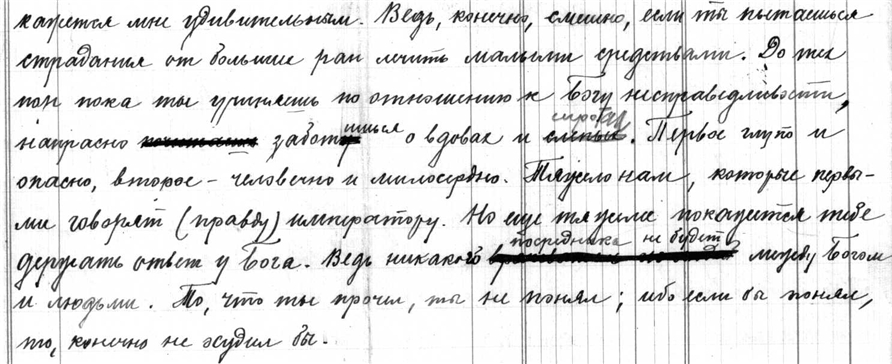 кажется мне удивительным. Ведь, конечно, смешно, если ты пытаешься
страдания от больших ран лечить малыми средствами. До тех
пор пока ты чинишь по отношению к Богу несправедливости,
напрасно заботишься о вдовах и сиротах. Первое глупо и
опасно, второе – человечно и милосердно. Тяжело нам, которые первы-
ми говорят (правду) императору. Но еще тяжелее покажется тебе
держать ответ у Бога. Ведь никакого посредника не будет между Богом
и людьми. То, что ты прочел, ты не понял; ибо если бы понял,
то, конечно не осудил бы.